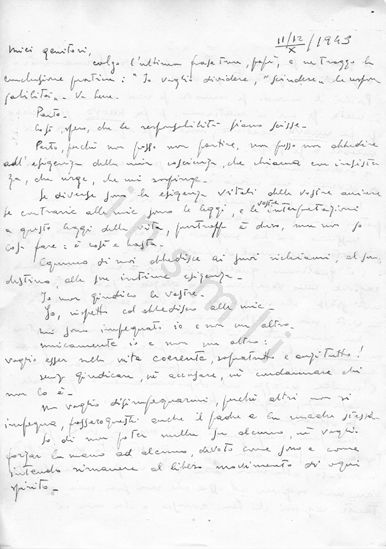 11/12/X/1943
Miei genitori,
colgo l'ultima frase tua, papà, e ne traggo la
conclusione pratica: "Io voglio dividere, "scindere" le respon
sabilità. - Va bene.
Parto.
Così, spero, che le responsabilità siano scisse. -
Parto, perché non posso non partire, non posso non obbedire
all'esigenza della mia coscienza, che chiama con insisten
za, che urge, che mi sospinge. -
Se diverse sono le esigenze vitali delle vostre anime
se contrarie alle mie sono le leggi, e le vostre interpretazioni
a queste leggi della vita, purtroppo è duro, ma non so
cosa fare: è così e basta. -
Ognuno di noi obbedisce ai suoi richiami, al suo
destino, alle sue intime esigenze. -
Io non giudico le vostre. -
Io, rispetto ed obbedisco alle mie. -
mi sono impegnato io e non un altro. -
unicamente io e non un altro:
voglio esser nella vita coerente, soprattutto e anzitutto!
senza giudicare, né accusare, né condannare chi
non lo è. -
Non voglio disimpegnarmi, perché altri non si
impegna, fossero questi anche il padre e la madre stessa.
So di non poter nulla su alcuno, né voglio
forzar la mano ad alcuno, devoto come sono e come
intendo rimanere al libero movimento di ogni
spirito. -
ipsml